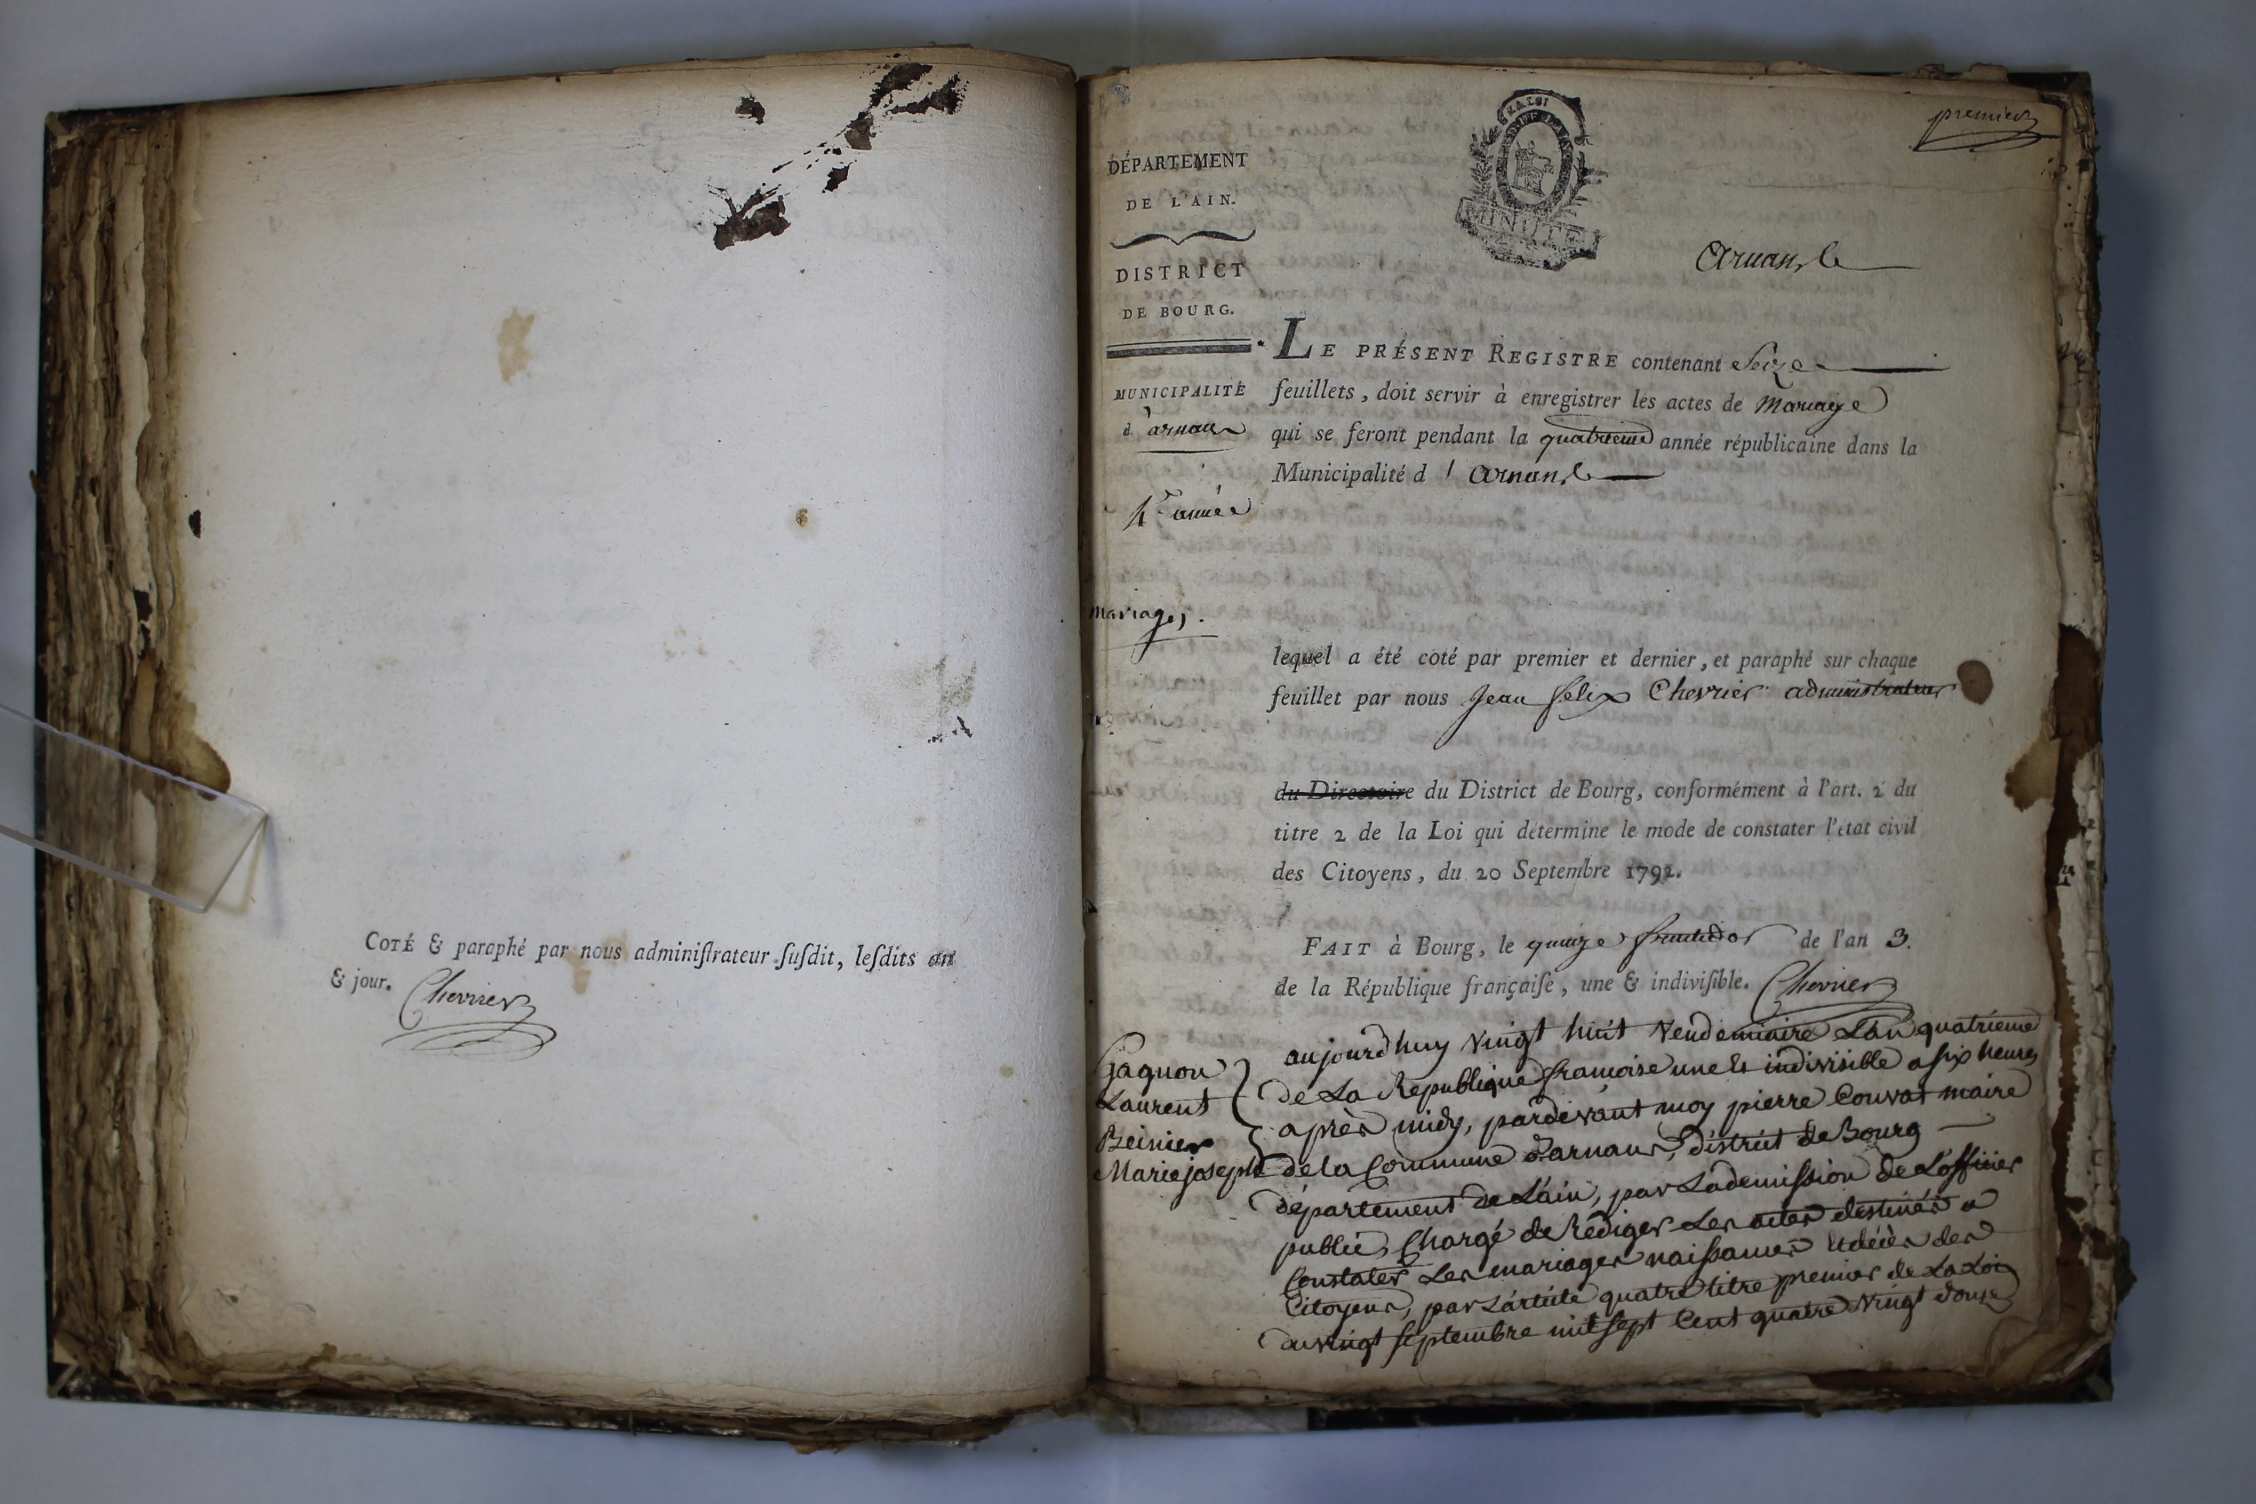 COTÉ & paraphé par nous adminiſtrateur ſuſdit, leſdits an
& jour. Chevrier
premier
LA LOI
MINUTE
DÉPARTEMENT
DE L'AIN.
DISTRICT
DE BOURG.
MUNICIPALITÉ
d' arnans
4e année
Mariages.
Arnans
LE PRÉSENT REGISTRE contenant Seize
feuillets, doit servir à enregistrer les actes de Mariage
qui se feront pendant la quatrieme année républicaine dans la
Municipalité d' Arnans
lequel a été coté par premier et dernier, et paraphé sur chaque
feuillet par nous Jean felix Chevrier administrateur
du Directoire du District de Bourg, conformément à l'art. 2 du
titre 2 de la Loi qui détermine le mode de constater l'état civil
des Citoyens, du 20 Septembre 1792.
FAIT à Bourg, le quinze fructidor de l'an 3.
de la République françaiſe, une & indiviſible. Chevrier
Gagnon
Laurent
Beinier
Marie joseph
aujourdhuy vingt huit Vendemiaire L'an quatrieme
de La Republique francoise une et indivisible a six heures
après midy, pardevant moy pierre Couvat maire
de la Commune d'arnans, district de Bourg
département de L'ain, par La demission de L'officier
public, Chargé de Rédiger Les actes destinés a
Constater Les mariages naissances et décès des
Citoyens, par L'article quatre titre premier de La Loi
du vingt septembre mil sept Cent quatre vingt douze